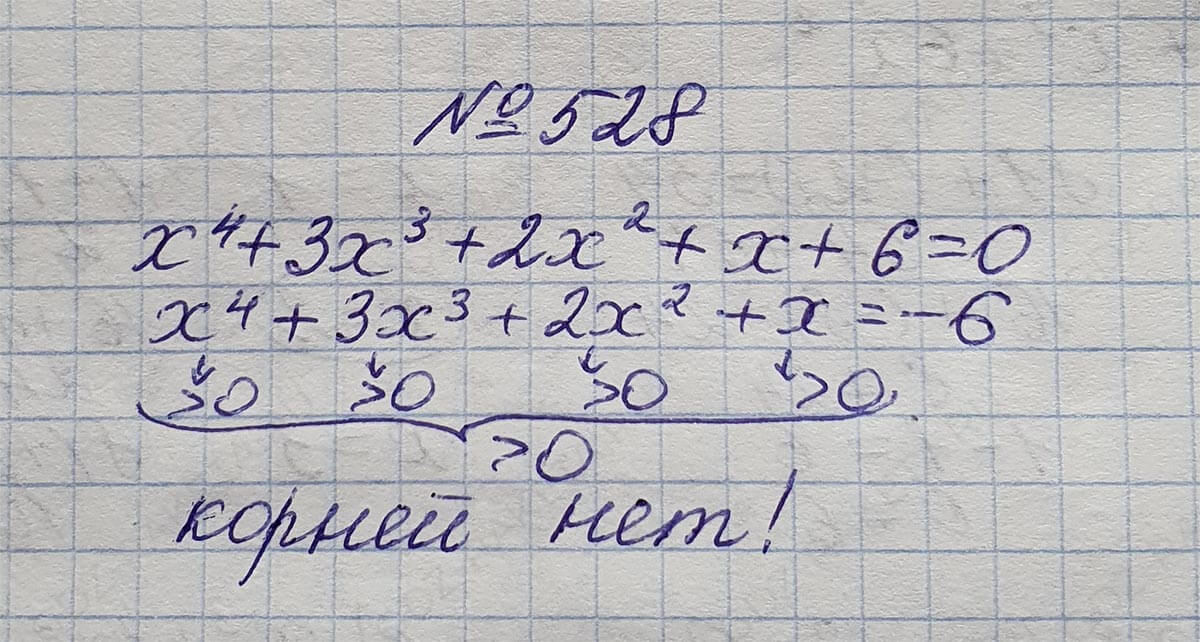 № 528
x⁴ + 3x³ + 2x² + x + 6 = 0
x⁴ + 3x³ + 2x² + x = -6
↓ ↓ ↓ ↓
>0 >0 >0 >0
>0
корней нет!